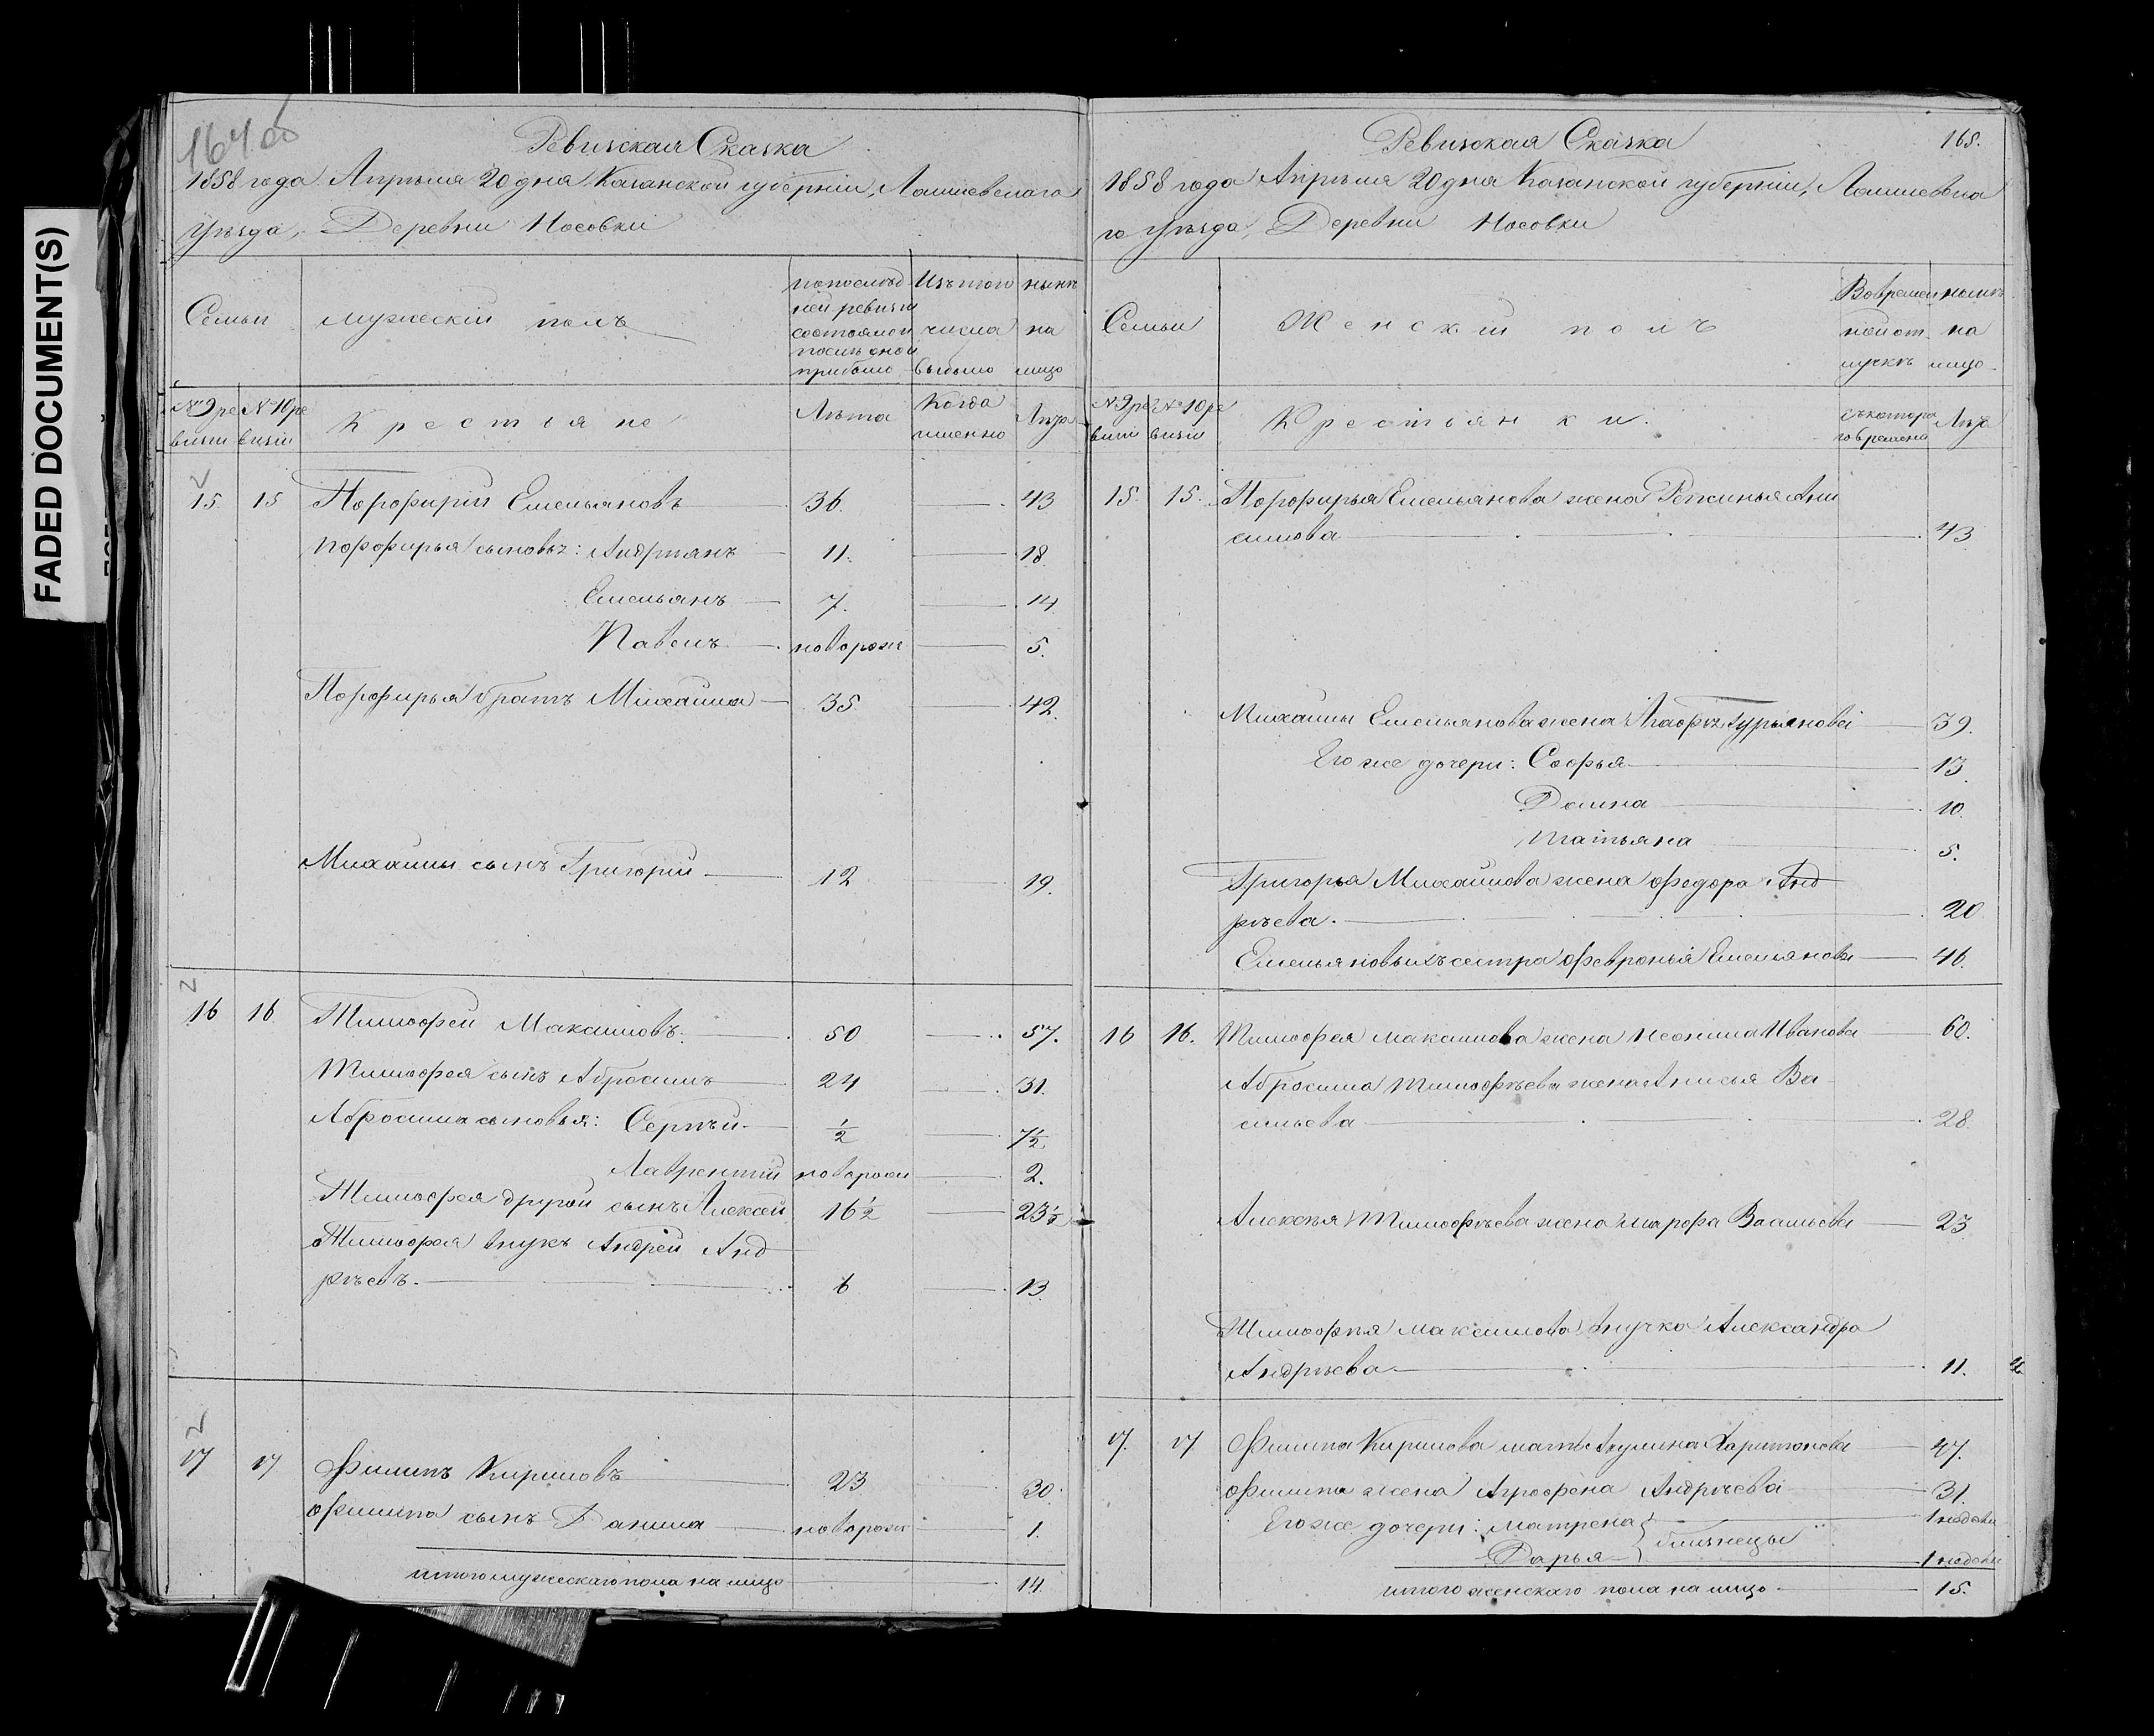 FADED DOCUMENT(S)
164 об
Ревизская Сказка
1858 года Апрѣля 20 дня Казанской губерніи, Лаишевскаго
уѣзда, Деревни Носовки
Семьи
мужескій полъ
по послѣд
ней ревизіи
состояло и
послѣ оной
прибыло
Изъ того
числа
выбыло
нынѣ
на
лицо
№ 9 ре
визіи
№ 10 ре
визіи
Крестьяне
Лѣта
Когда
именно
Лѣта
15. 15 Порфирій Емельяновъ 36. 43
Порфирья сыновья: Андріянъ 11. 18.
Емельянъ 7. 14
Павелъ новорож 5.
Порфирья братъ Михайла 35 42.
Михайлы сынъ Григорій 12 19.
16 16 Тимофей Максимовъ. 50 57.
Тимофея сынъ Абросимъ 24 31.
Абросима сыновья: Сергѣй ½ 7½.
Лаврентій новорож 2.
Тимофея другой сынъ Алексей 16½ 23½
Тимофея внукъ Андрей Анд
рѣевъ. 6 13.
17 17 Филипъ Кириловъ 23 30.
Филипа сынъ Данила новорож 1.
итого мужескаго пола на лицо 14
165.
Ревизская Сказка
1858 года Апрѣля 20 дня Казанской губерніи, Лаишевска
го уѣзда, Деревни Носовки
Семьи
Женскій полъ
Во времен
ной от
лучкѣ
нынѣ
на
лицо
№ 9 ре
визіи
№ 10 ре
визіи
Крестьянки.
съ котора
го времени
Лѣта
15. 15. Порфирья Емельянова жена Ксинья Ани
симова 43
Михайлы Емельянова жена Агафья Гурьянова 39.
Его же дочери: Софья 13.
Домна 10.
Татьяна 5.
Григорья Михайлова жена Федора Анд
рѣева. 20
Емельяновыхъ сестра Февронья Емельянова 46.
16 16. Тимофея Максимова жена Неонила Иванова 60.
Абросима Тимофѣева жена Анисья Ва
сильева 28.
Алексѣя Тимофѣева жена Марфа Васильева 23
Тимофѣя Максимова внучка Александра
Андрѣева 11.
17. 17 Филипа Кирилова мать Акулина Харитонова 47.
Филипа жена Аграфена Андрѣева 31.
Его же дочери: Матрена близнецы 1 недѣли
Дарья 1 недѣли
итого женскаго пола на лицо 15.